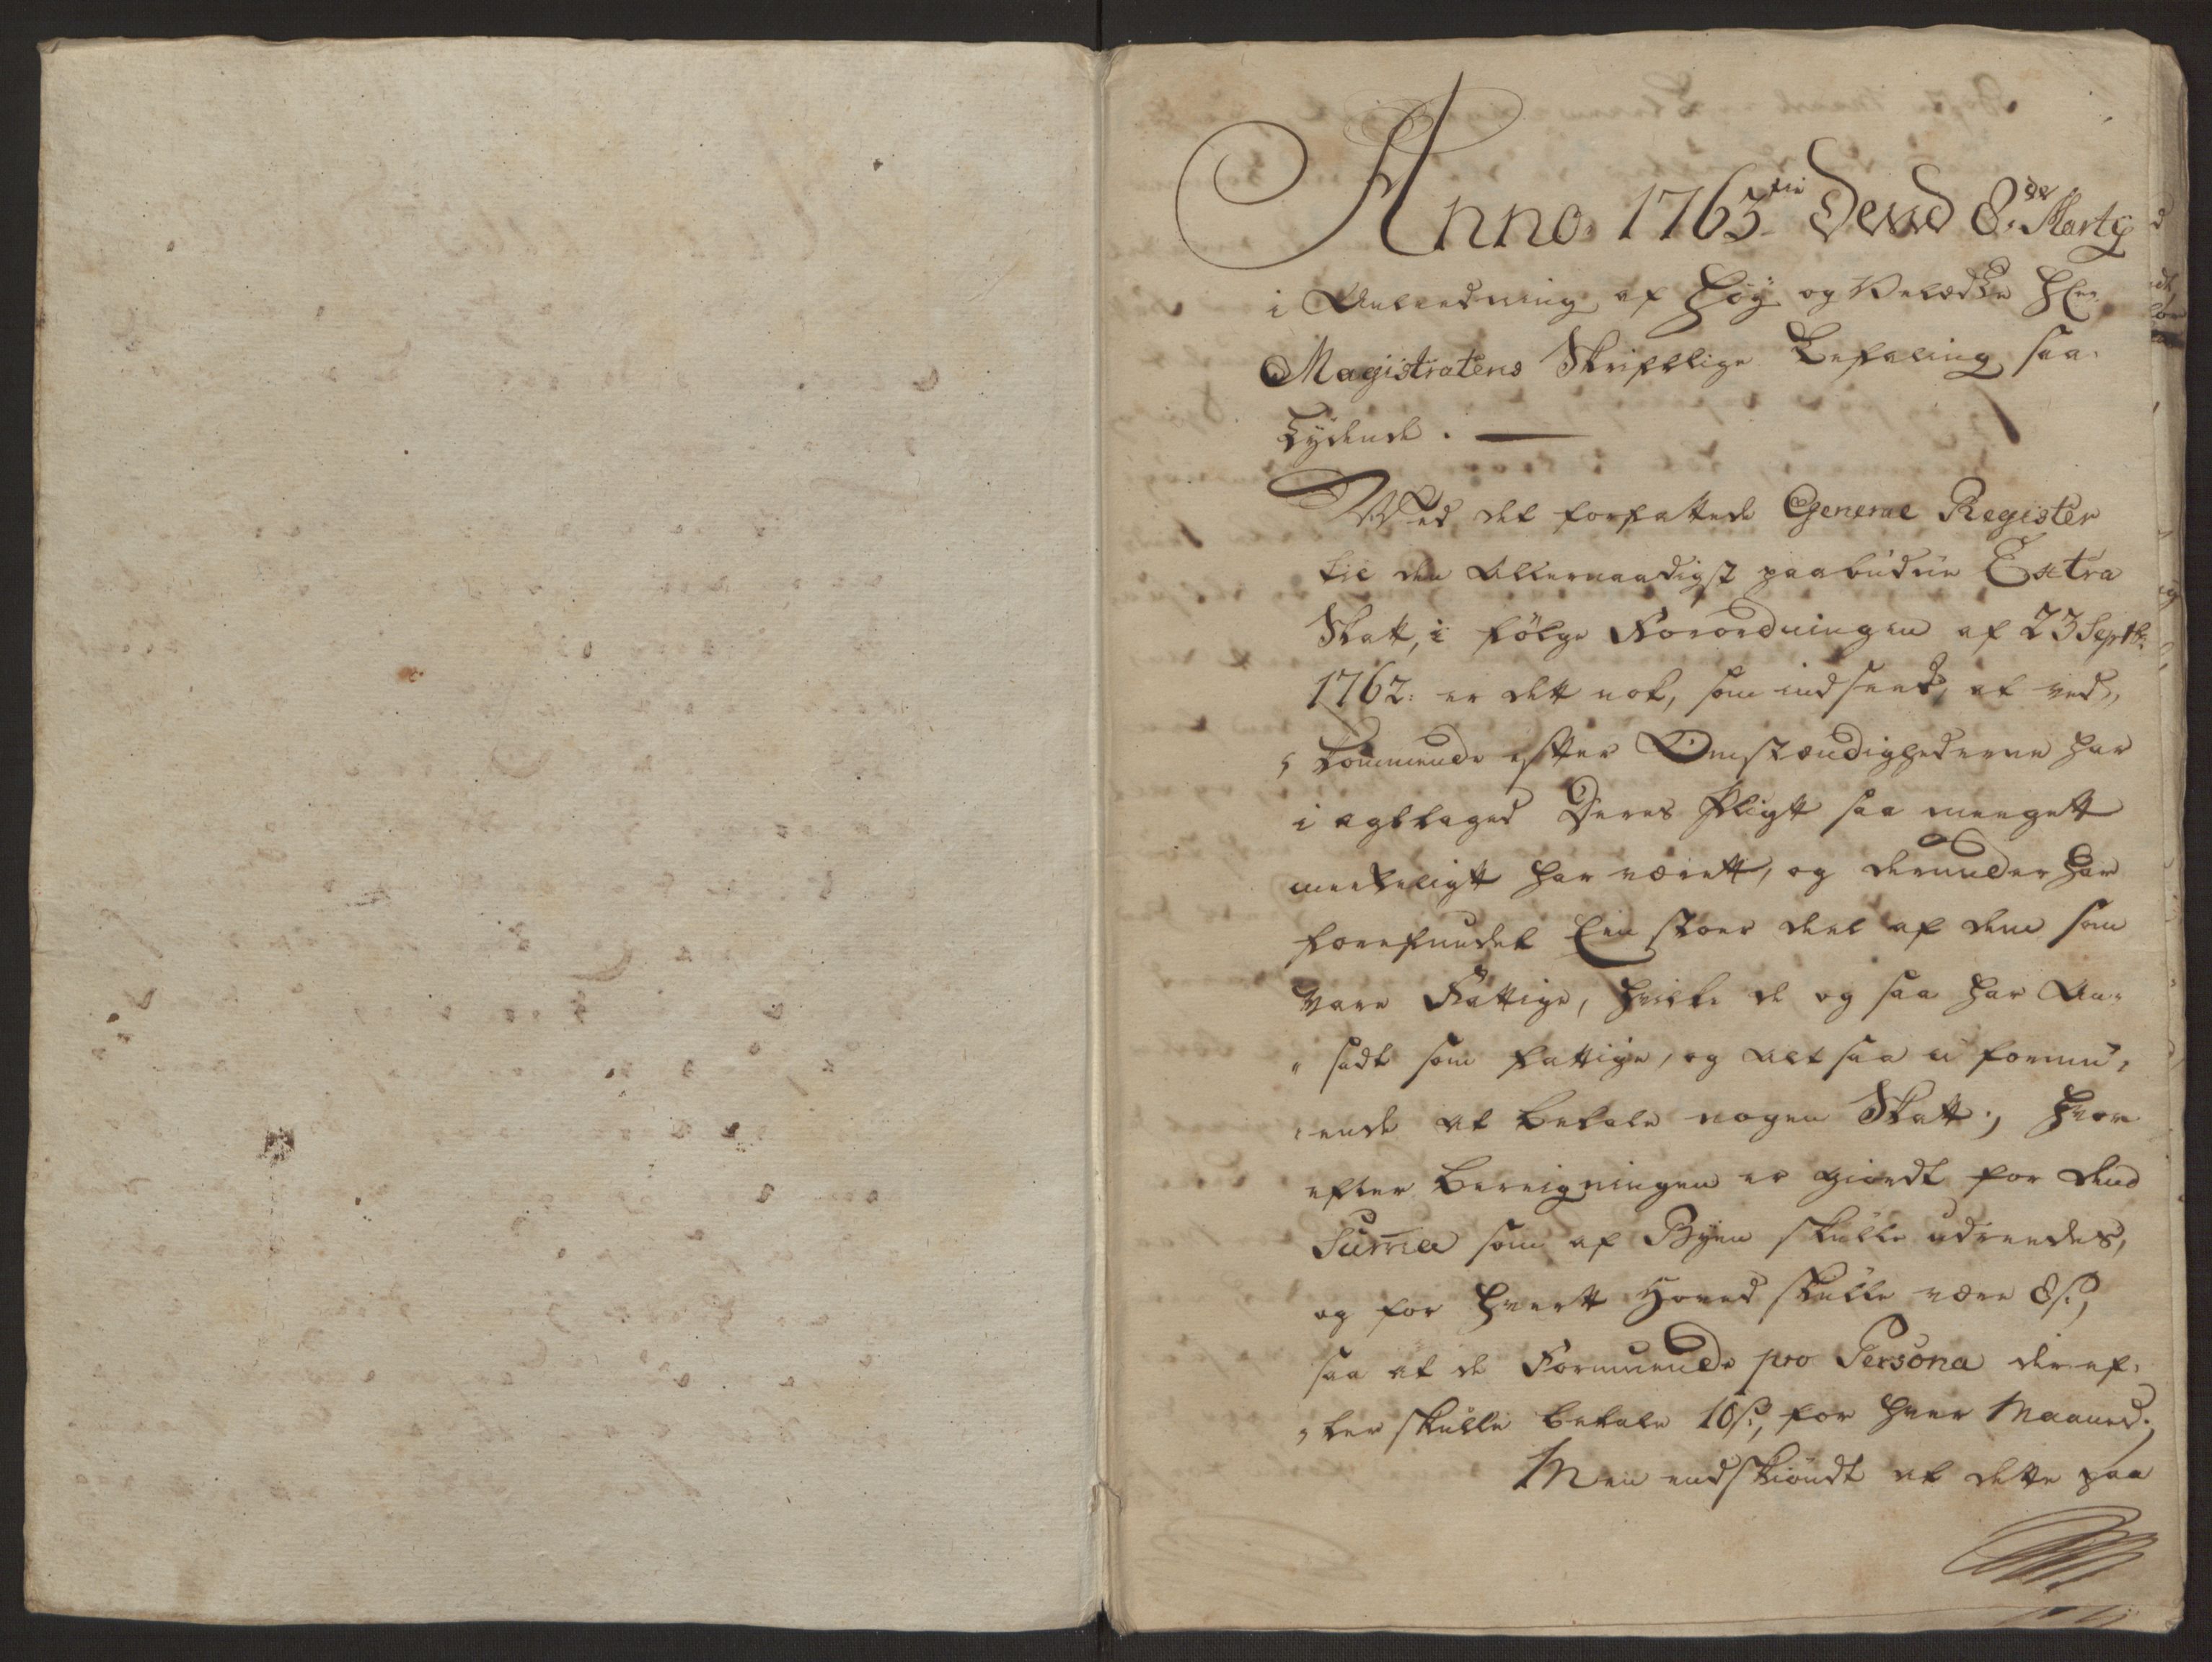 Anno. 1763tie Dend 8de Marty
i Anleedning af Høy og Velædle H:r
Magistratens Skriftlige Befaling saa¬
Lydende. —
Ved det forfattede General Register
til den Allernaadigst paabudne Extra
Skatt, i følge Forordningen af 23 Septbr:
1762: er dett nok, som indseet, at ved„
„kommende efter Omstændighederne har
i agttaged Deres Pligt saa meegett
mueheligt har værett, og derunder har
forefundet Een stoer deel af dem som
vare Fattige, hvilke de og saa har An„
„sadt som fattige, og alt saa ei formu„
„ende at betale nogen Skatt; hvor
efter bereigningen er giordt for dend
Summa som af Byen skulle udreedes,
og for hvertt Hoved skulle være 8s:,
saa at de Formuende pro Persona deref„
„ter skulle betale 10s:, for hver Maaned.;
Men endskiøndt at dette paa